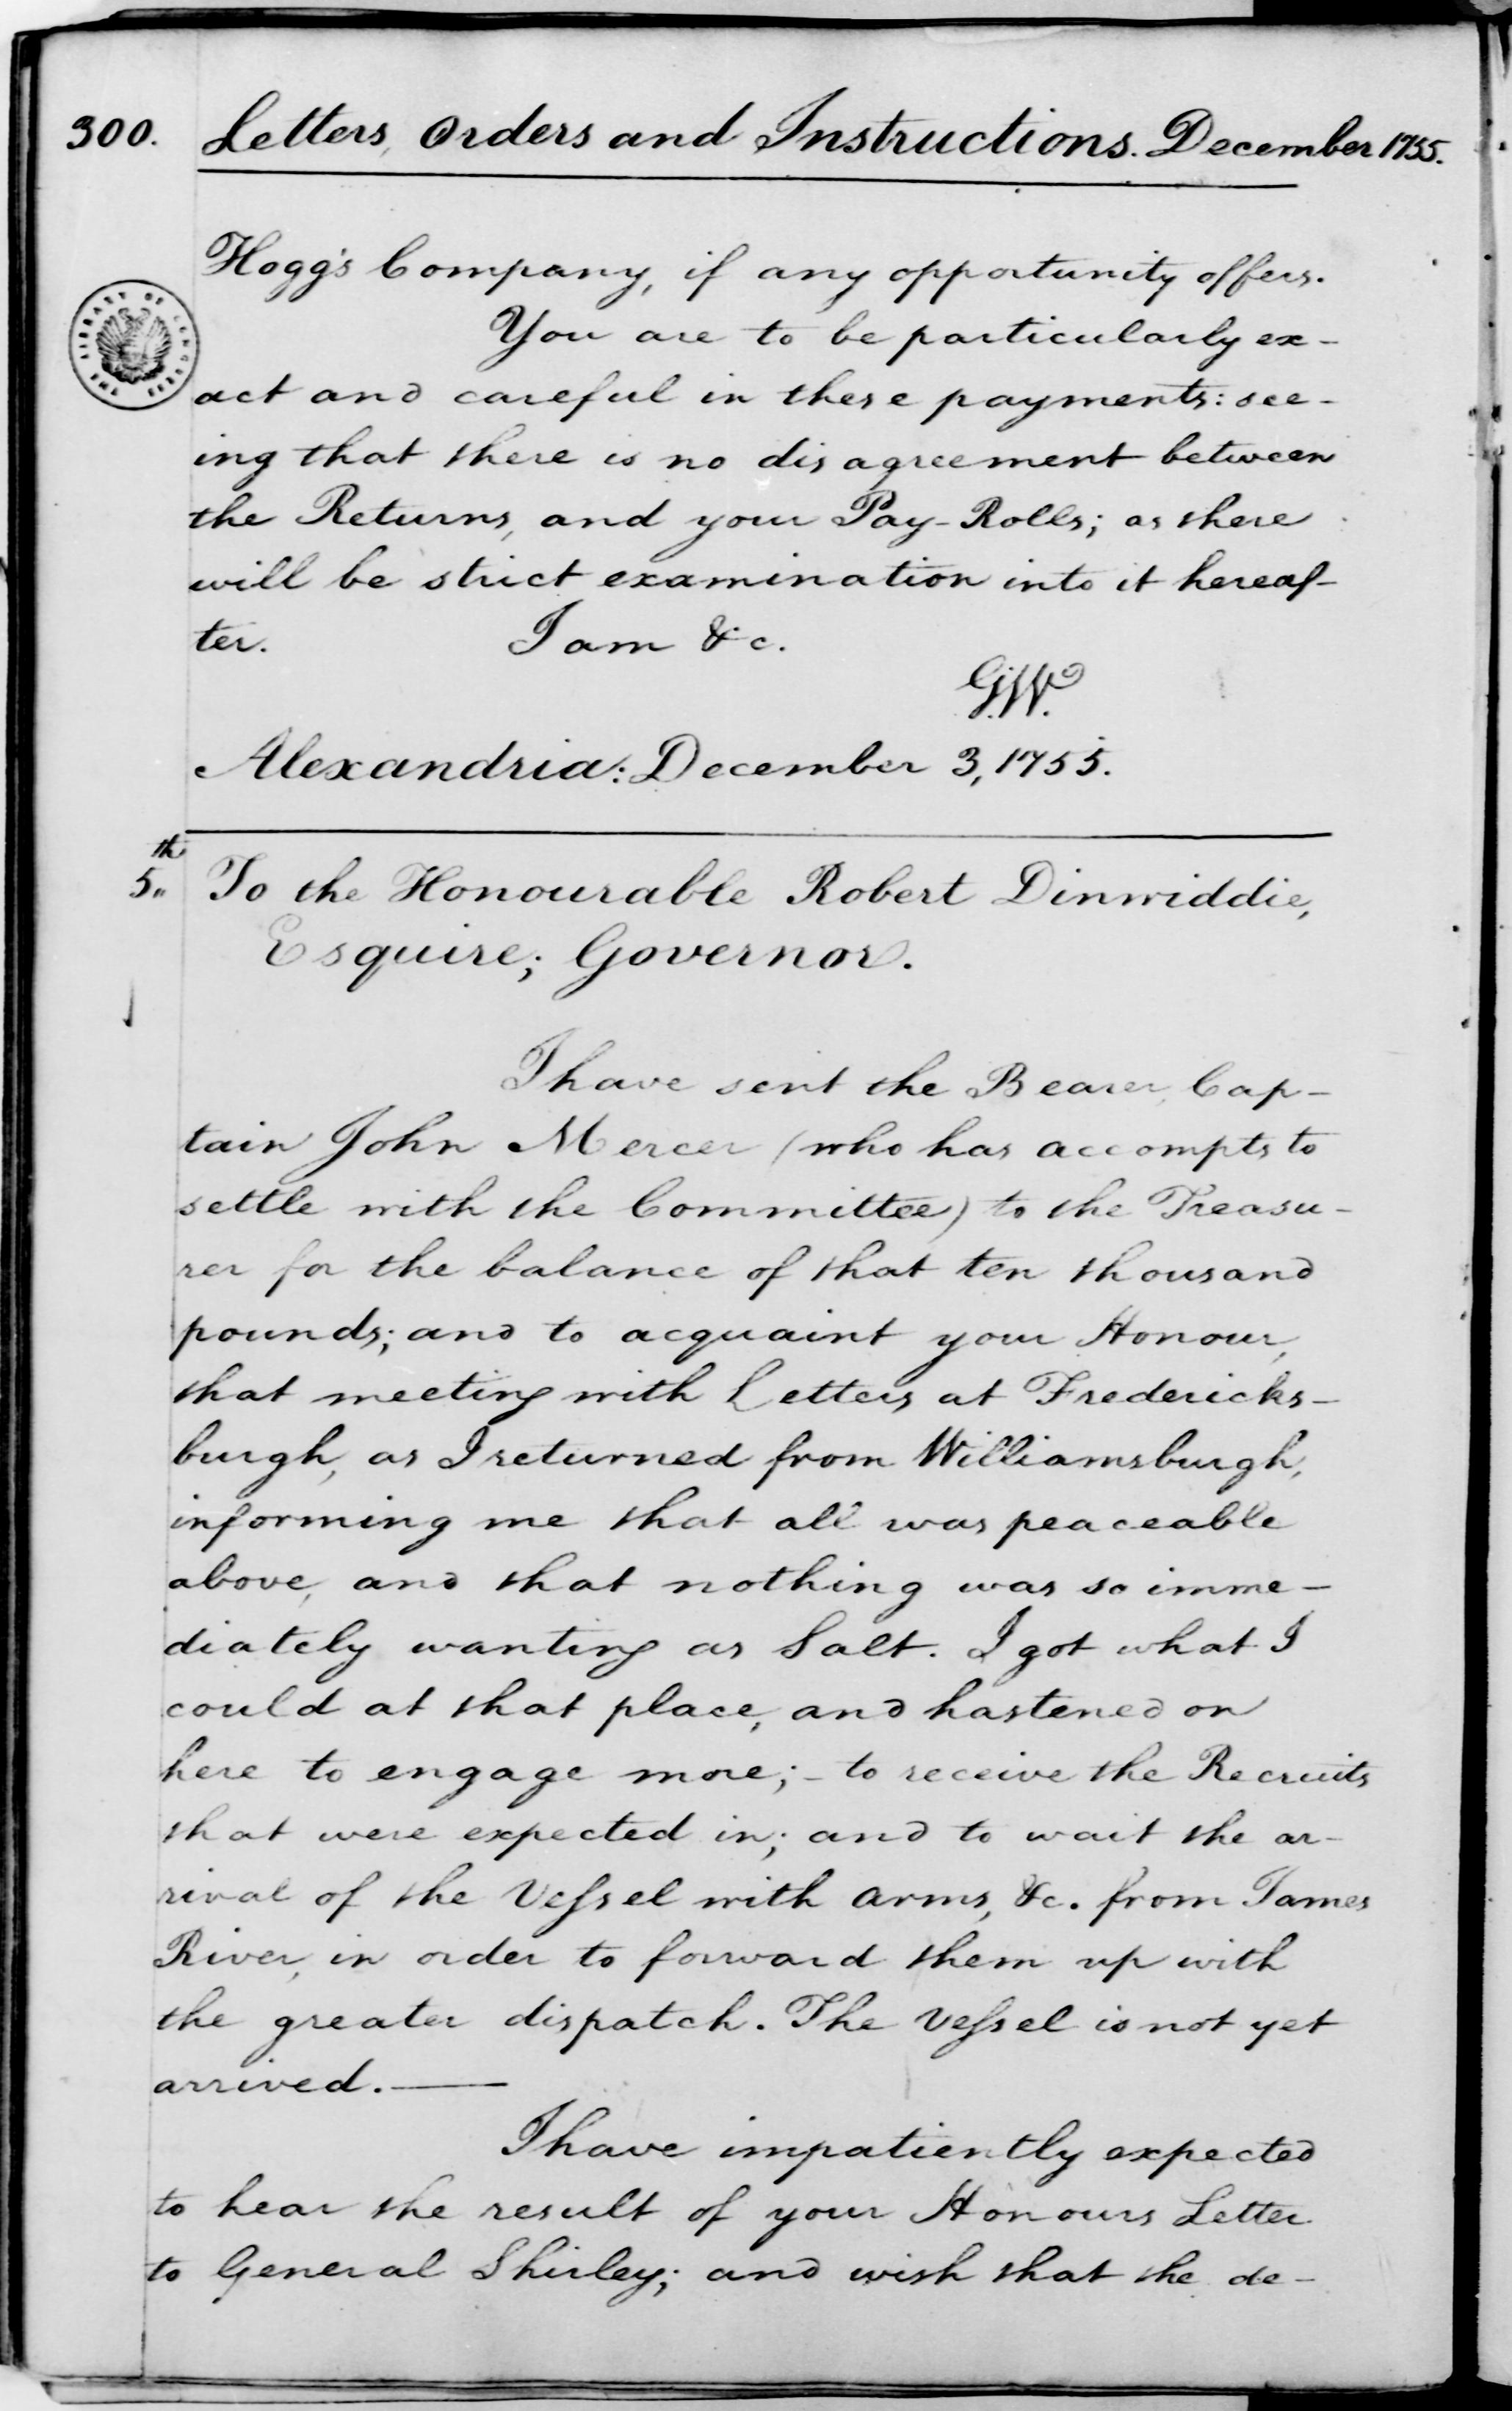 300. Letters, Orders and Instructions. December 1755.
Hogg's Company, if any opportunity offers.
THE LIBRARY OF CONGRESS
You are to be particularly ex-
act and careful in these payments: see-
ing that there is no disagreement between
the Returns, and your Pay-Rolls; as there
will be strict examination into it hereaf-
ter. I am &c.
G.W.
Alexandria: December 3, 1755.
5th To the Honourable Robert Dinwiddie,
Esquire; Governor.
I have sent the Bearer, Cap-
tain John Mercer (who has accompts to
settle with the Committee) to the Treasu-
rer for the balance of that ten thousand
pounds; and to acquaint your Honour,
that meeting with Letters at Fredericks-
burgh, as I returned from Williamsburgh,
informing me that all was peaceable
above, and that nothing was so imme-
diately wanting as Salt. I got what I
could at that place, and hastened on
here to engage more; - to receive the Recruits
that were expected in; and to wait the ar-
rival of the Vessel with arms, &c. from James
River, in order to forward them up with
the greater dispatch. The Vessel is not yet
arrived. —
I have impatiently expected
to hear the result of your Honours Letter
to General Shirley; and wish that the de-